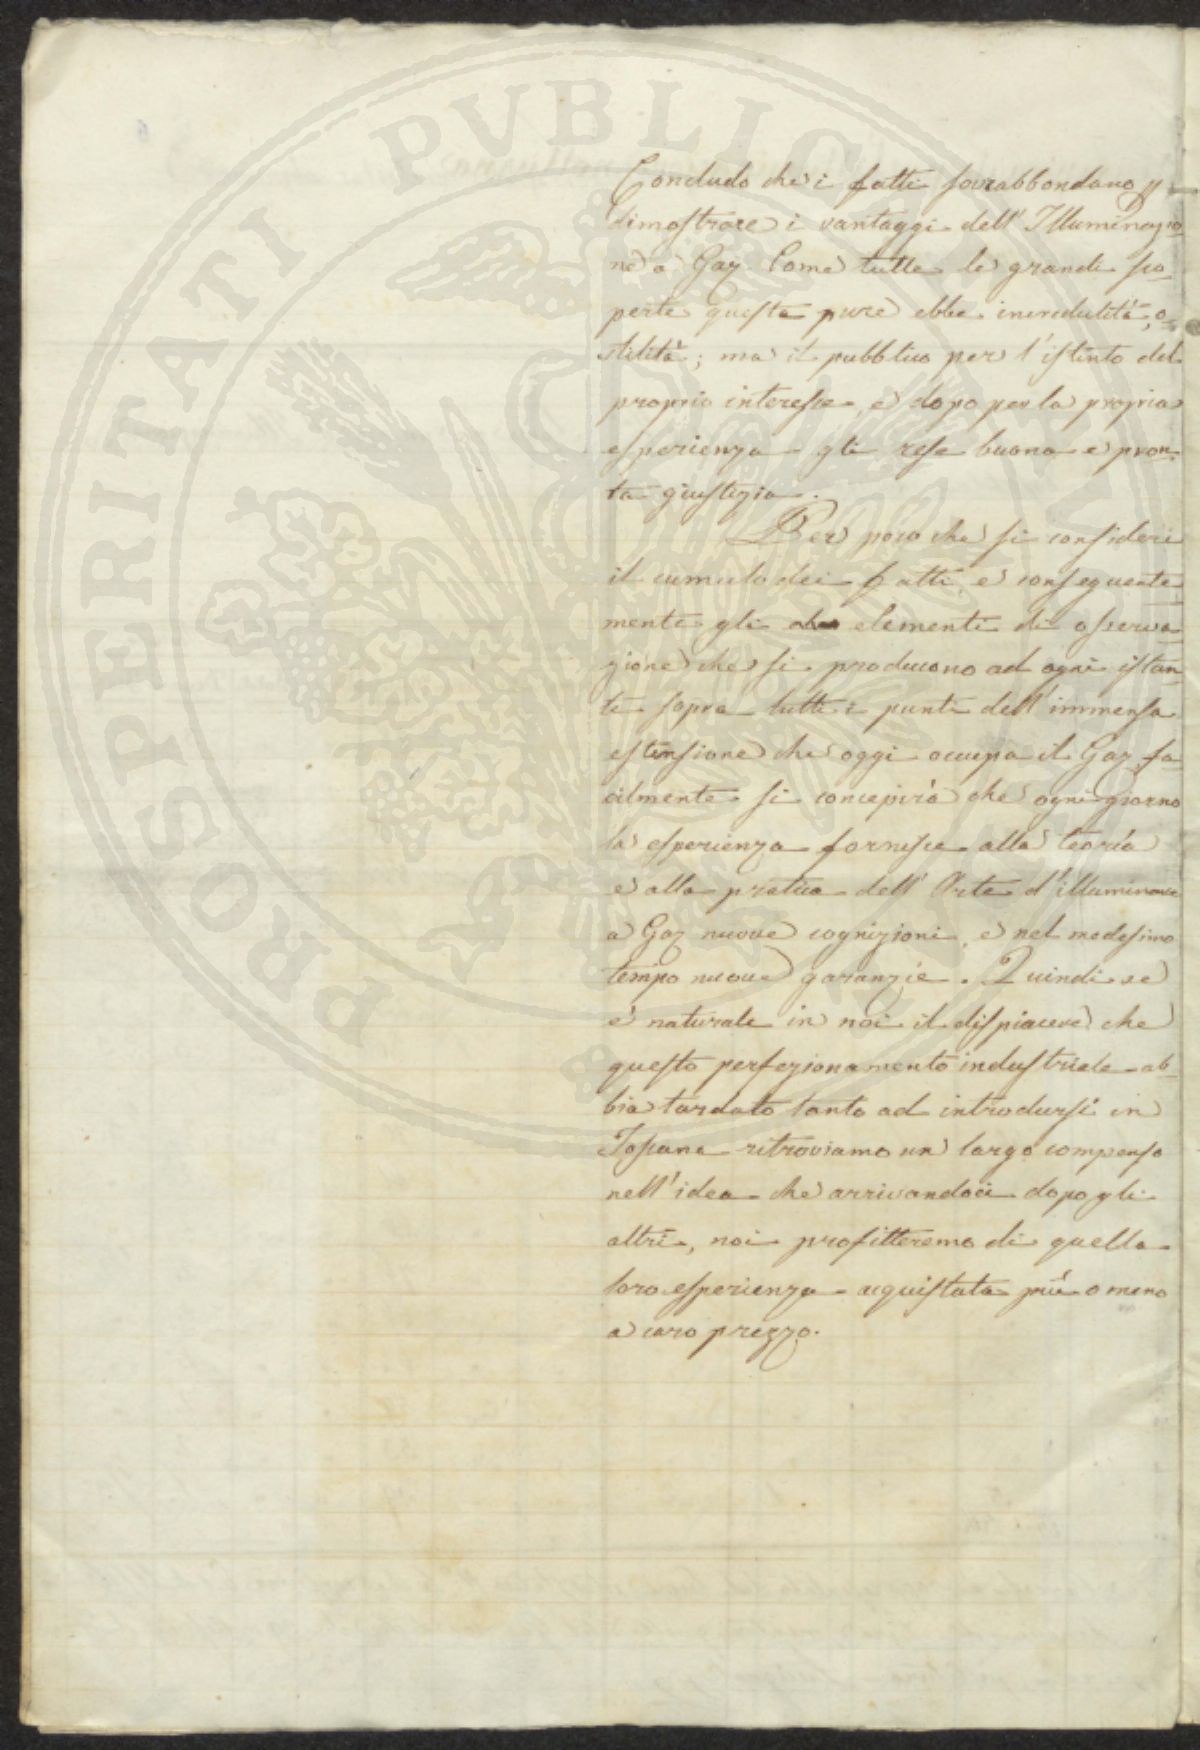 PROSPERITATI PVBLICAE
Concludo che i fatti sovrabbondano p
dimostrare i vantaggi dell'Illuminazio-
ne a Gaz. Come tutte le grandi sco-
perte questa pure ebbe incredulità, o-
stilità; ma il pubblico per l'istinto del
proprio interesse, e dopo per la propria
esperienza gli rese buona e pron-
ta giustizia.
Per poco che si consideri
il cumulo dei fatti, e conseguente-
mente gli elementi di osserva-
zione che si producono ad ogni istan-
te sopra tutti i punti dell'immensa
estensione che oggi occupa il Gaz fa-
cilmente si concepirà che ogni giorno
la esperienza fornisce alla teoria
e alla pratica dell'Arte d'illuminare
a Gaz nuove cognizioni, e nel medesimo
tempo nuove garanzie. Quindi se
è naturale in noi il dispiacere che
questo perfezionamento industriale ab-
bia tardato tanto ad introdursi in
Toscana ritroviamo un largo compenso
nell'idea che arrivandoci dopo gli
altri, noi profitteremo di quella
loro esperienza acquistata più o meno
a caro prezzo.